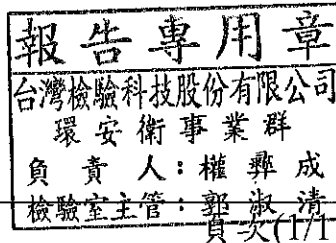 報告專用章
台灣檢驗科技股份有限公司
環安衛事業群
負責人：權彝成
檢驗室主管：郭淑清
頁次(1/1